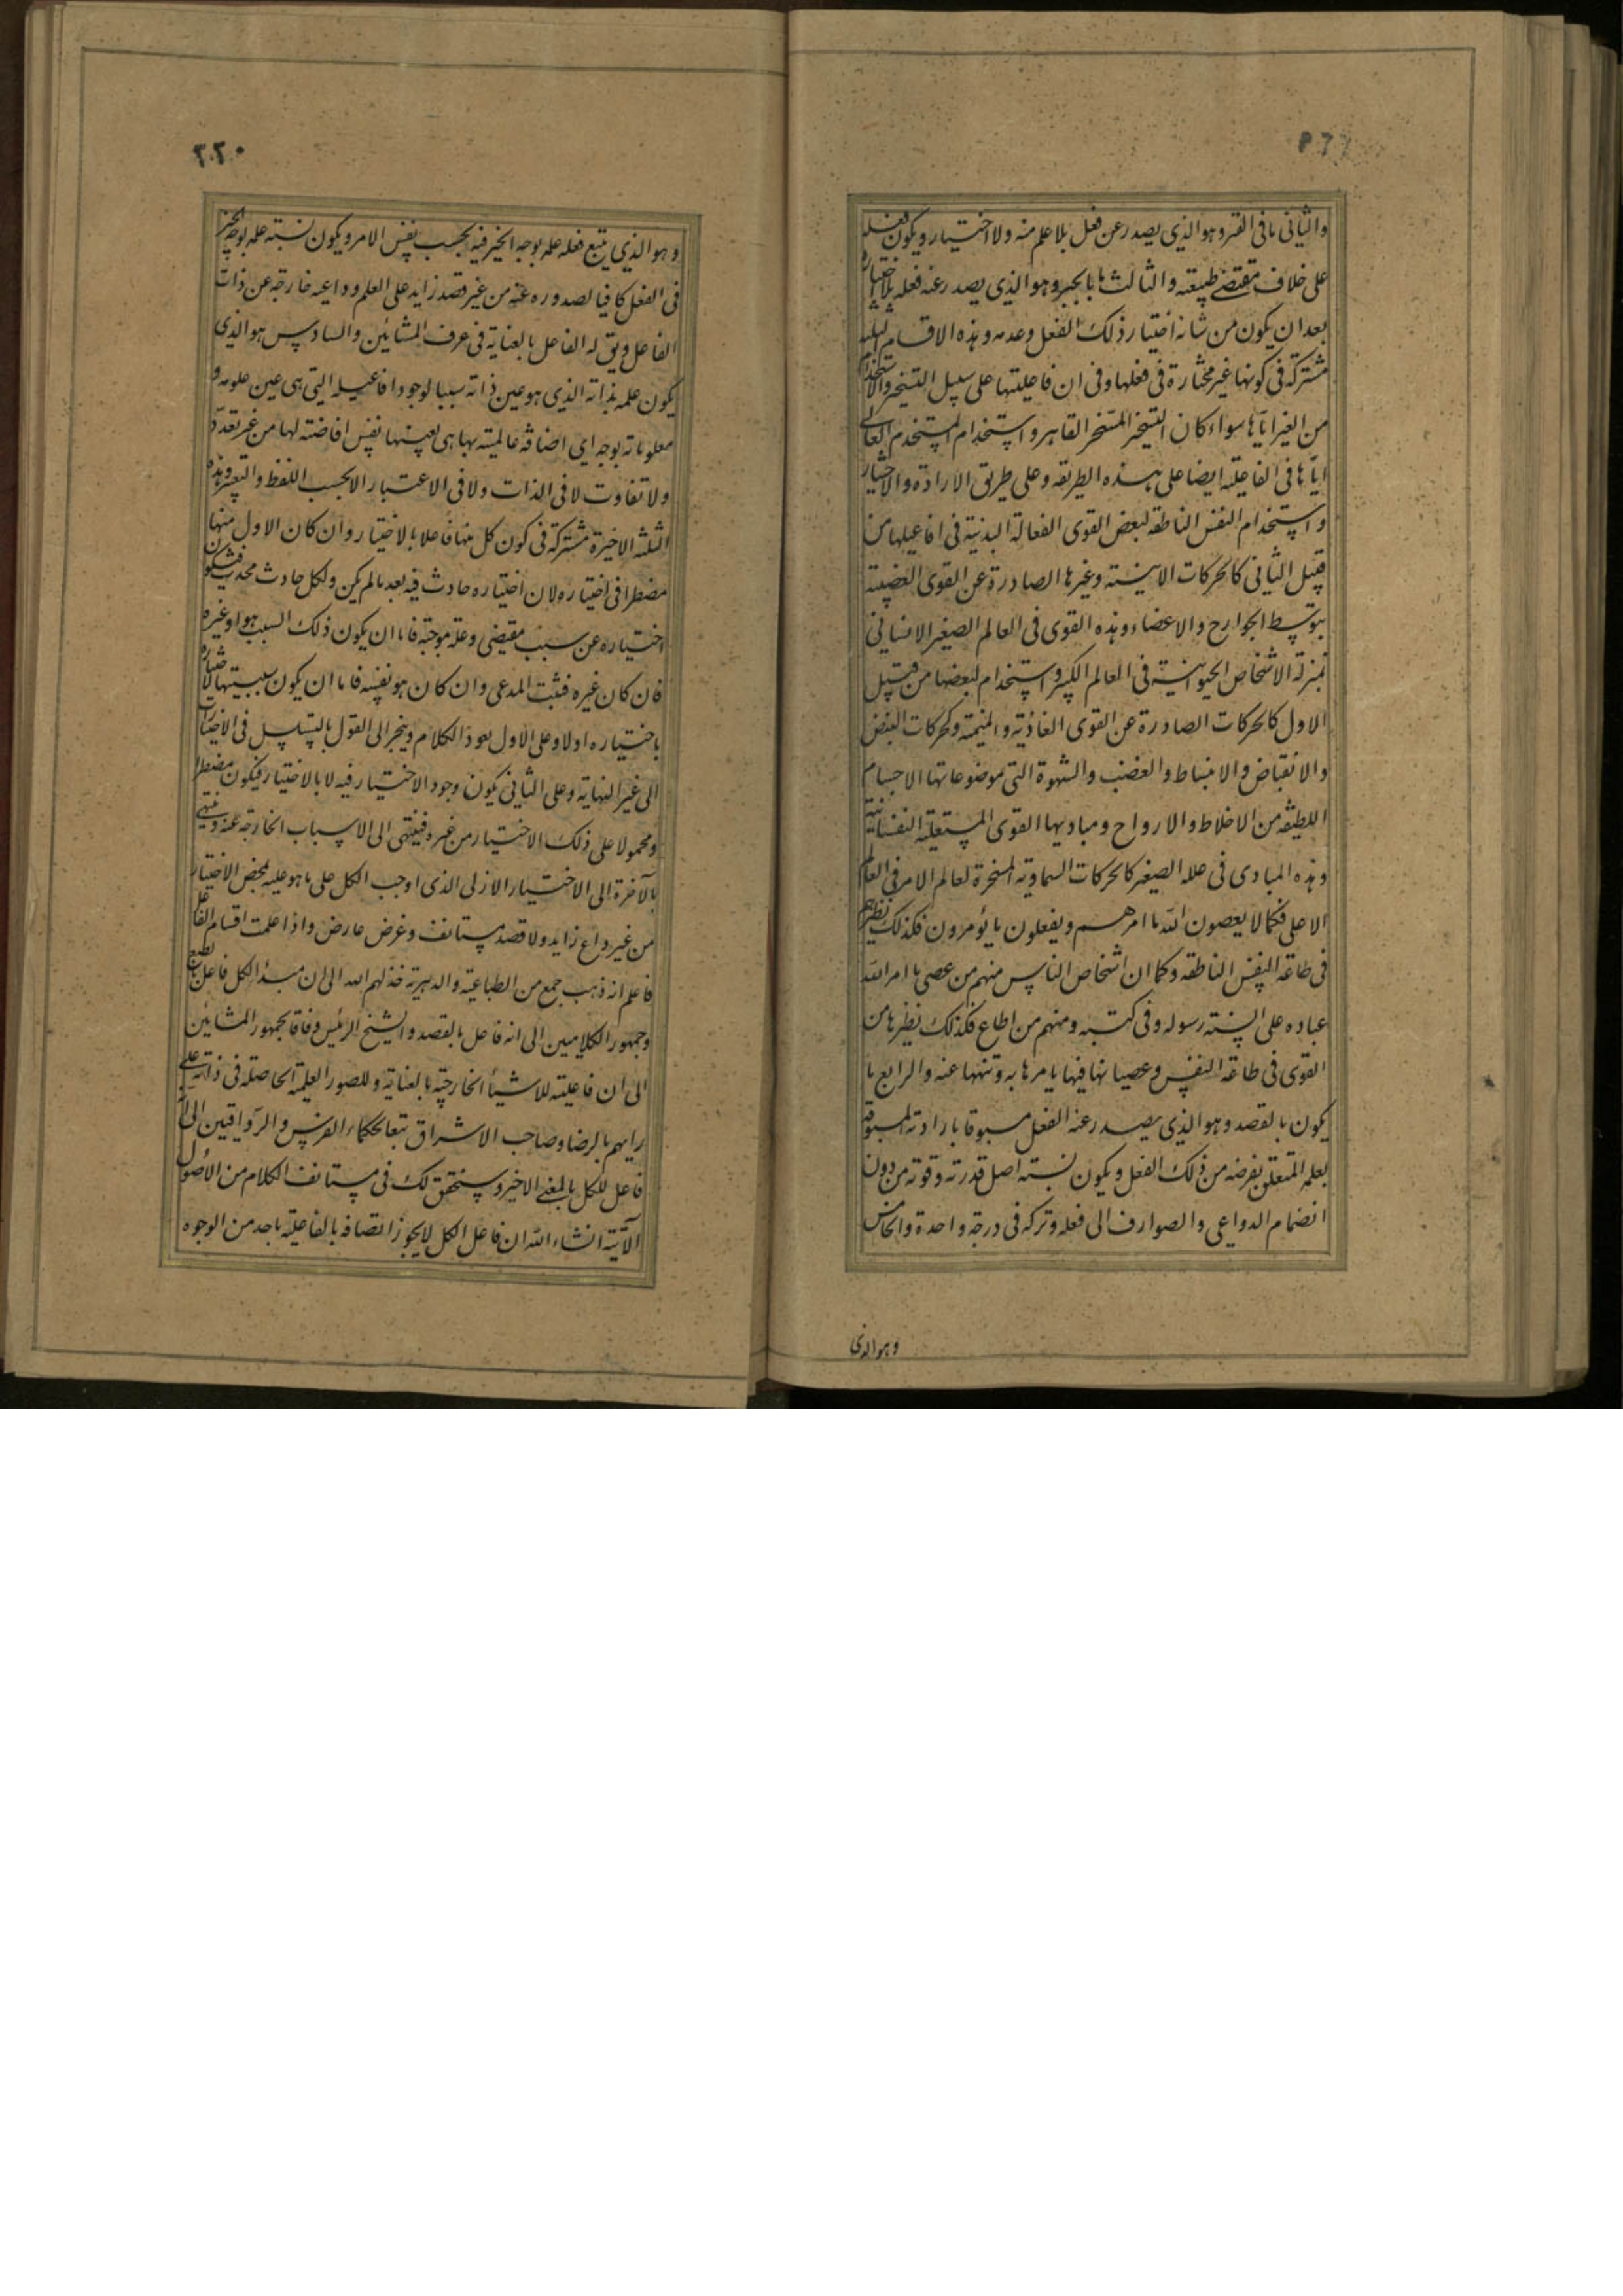 والثانی ما فی القسر وهو الذی یصدر عن فعل بلا علم منه ولا اختیار ویکون فعله
علی خلاف مقتضی طبیعته والثالث ما بالجبر وهو الذی یصدر عنه فعله بلا اختیاره
بعد ان یکون من شانه اختیار ذلک الفعل وعدمه وهذه الاقسام الثلثه
مشترکة فی کونها غیر مختارة فی فعلها وفی ان فاعلیتها علی سبیل التسخیر والاستخدام
من الغیر ایاها سواء کان التسخیر المسخر القاهر واستخدام المستخدم العالی
ایاها فی الفاعلیه ایضا علی هذه الطریقه وعلی طریق الارادة والاختیار
واستخدام النفس الناطقه لبعض القوی الفعالة البدنیة فی افاعیلها من
قبیل الثانی کالحرکات الاینیته وغیرها الصادرة عن القوی العضبیة
بتوسط الجوارح والاعضاء وهذه القوی فی العالم الصغیر الانسانی
بمنزلة الاشخاص الحیوانیة فی العالم الکبیر واستخدام لبعضها من قبیل
الاول کالحرکات الصادرة عن القوی الغاذیة والمنیمة وکحرکات النبض
والانقباض والانبساط والغضب والشهوة التی موضوعاتها الاجسام
اللطیفه من الاخلاط والارواح ومبادیها القوی المستعلیه النفسانیة
وهذه المبادی فی عالمه الصغیر کالحرکات السماویة المسخرة لعالم الامر فی العالم
الاعلی فکما لا یعصون الله ما امرهم ویفعلون ما یؤمرون فکذلک نظیرهم
فی طاعة النفس الناطقه وکما ان اشخاص الناس منهم من عصی ما امر الله
عباده علی السنة رسوله وفی کتبه ومنهم من اطاع فکذلک نظیرها من
القوی فی طاعة النفس وعصیانها فیها یامرها به وتنهها عنه والرابع ما
یکون بالقصد وهو الذی یصدر عنه الفعل مسبوقا بارادته المسبوقة
بعلمه المتعلق بغرضه من ذلک الفعل ویکون نسبته اصل قدرته وقوته من دون
انضمام الدواعی والصوارف الی فعله وترکه فی درجة واحدة والخامس
وهو الذی
۲۲۰
وهو الذی یتبع فعله علمه بوجه الخیر فیه بحسب نفس الامر ویکون نسبته علمه بوجه الخیر
فی الفعل کافیا لصدوره عنه من غیر قصد زاید علی العلم وداعیه خارجه عن ذات
الفاعل ویق له الفاعل بالعنایة فی عرف المشائین والسادس هو الذی
یکون علمه بذاته الذی هو عین ذاته سببا لوجود افاعیله التی هی عین علومه و
معلوماته بوجه ای اضافة عالمیته بها هی بعینها نفس افاضته لها من غیر تعدد
ولا تفاوت لا فی الذات ولا فی الاعتبار الا بحسب اللفظ والتعبیر وهذه
الثلثه الاخیرة مشترکة فی کون کل منها فاعلا بالاختیار وان کان الاول منها
مضطرا فی اختیاره لان اختیاره حادث فیه بعد ما لم یکن ولکل حادث محدث فیکون
اختیاره عن سبب مقتضی وعلة موجبة فاما ان یکون ذلک السبب هو او غیره
فان کان غیره فثبت المدعی وان کان هو نفسه فاما ان یکون سببیتها لاختیاره
باختیاره اولا وعلی الاول یعود الکلام وینجر الی القول بالتسلسل فی الاختیارات
الی غیر النهایة وعلی الثانی یکون وجود الاختیار فیه لا بالاختیار فیکون مضطرا
ومحمولا علی ذلک الاختیار من غیره فینتهی الی الاسباب الخارجة عنه وینتهی
بالآخرة الی الاختیار الازلی الذی اوجب الکل علی ما هو علیه بمحض الاختیار
من غیر داع زاید ولا قصد مستانف وغرض عارض واذا علمت اقسام الفاعل
فاعلم انه ذهب جمع من الطباعیة والدهریة خذلهم الله الی ان مبدأ الکل فاعل بالطبع
وجمهور الکلامیین الی انه فاعل بالقصد والشیخ الرئیس وفاقا لجمهور المشائین
الی ان فاعلیته للاشیاء الخارجیة بالعنایة وللصور العلمیة الحاصله فی ذاته علی
رایهم بالرضا وصاحب الاشراق تبعا لحکماء الفرس والرواقیین الی انه
فاعل للکل بالمعنی الاخیر وسنحقق لک فی مستانف الکلام من الاصول
الآتیة انشاء الله ان فاعل الکل لا یجوز اتصافه بالفاعلیة باحد من الوجوه